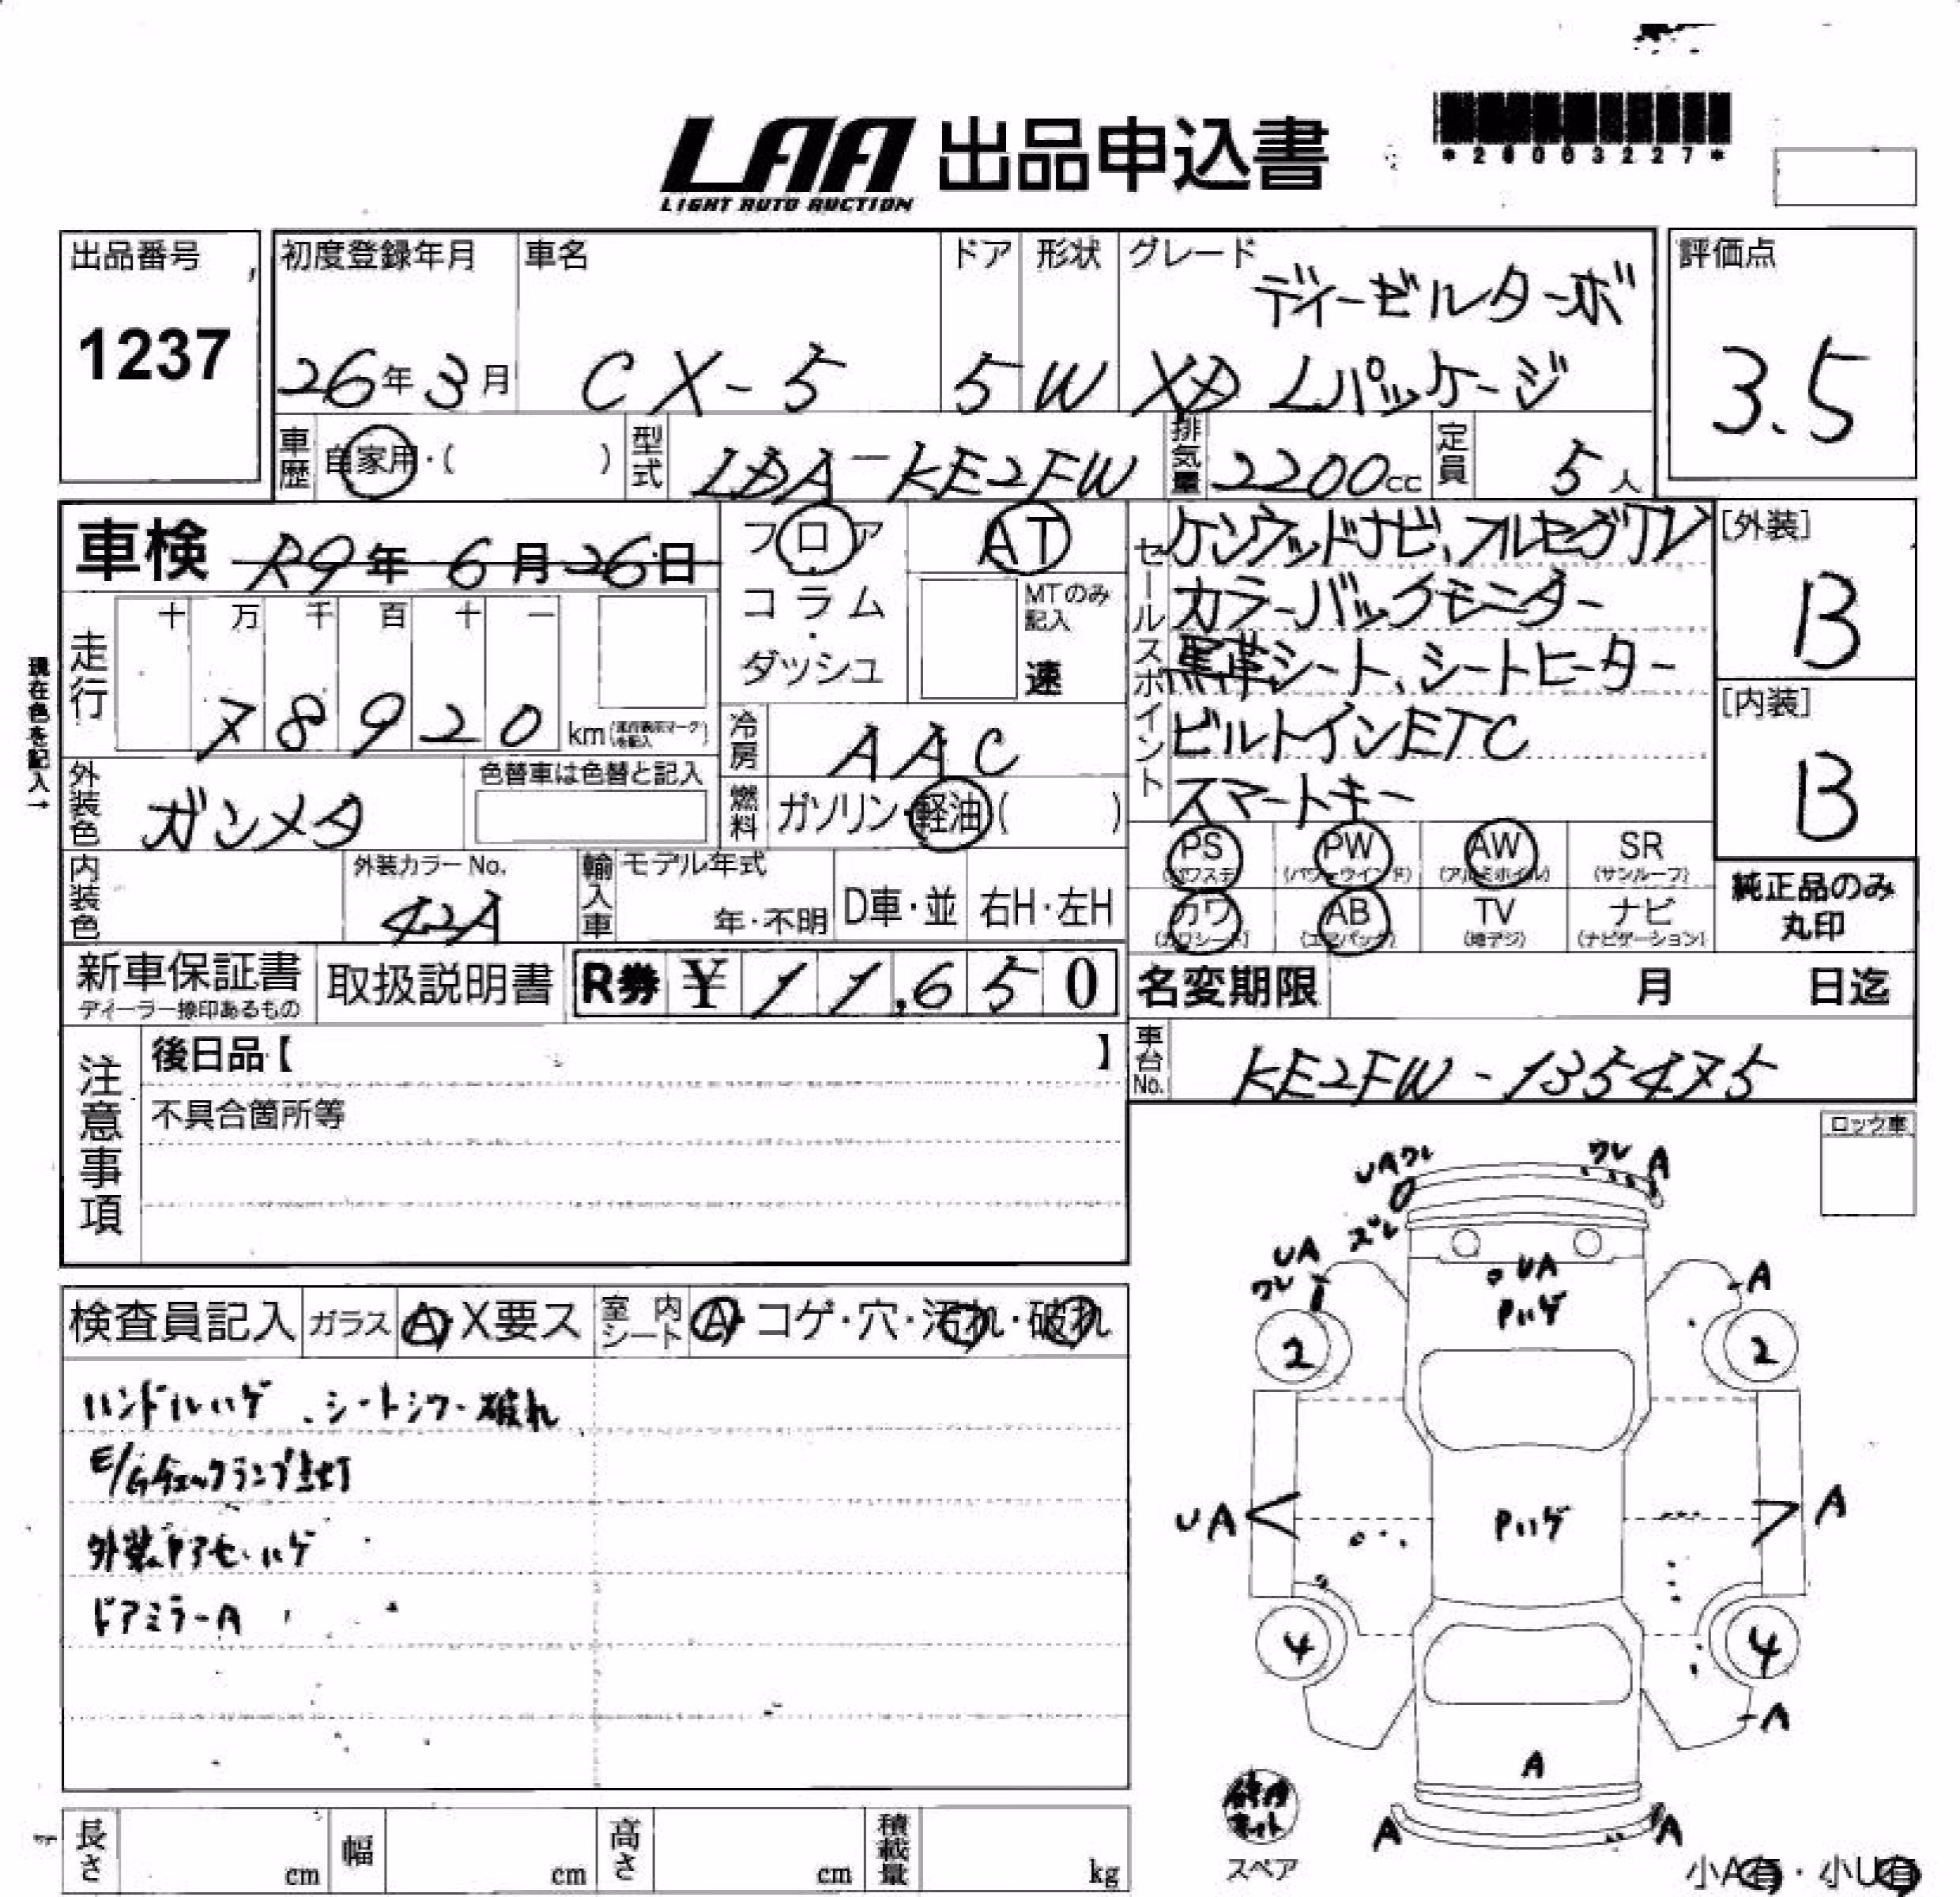 LAA 出品申込書
LIGHT AUTO AUCTION
*26003227*
出品番号
1237
初度登録年月
26年3月
車名
CX-5
ドア
5
形状
W
グレード
ディーゼルターボ
XD Lパッケージ
評価点
3.5
車歴 自家用・( )
型式 LDA-KE2FW
排気量 2200cc
定員 5人
車検 R9年6月26日
フロア
・
コラム
・
ダッシュ
AT
MTのみ記入
速
セールスポイント
ケンウッドナビ、フルセグTV
カラーバックモニター
黒革シート、シートヒーター
ビルトインETC
スマートキー
[外装]
B
[内装]
B
現在色を記入→
走行
十 万 千 百 十 一
7 8 9 2 0 km
冷房 AAC
外装色 ガンメタ
色替車は色替と記入
燃料 ガソリン・軽油( )
PS (パワステ)
PW (パワーウインド)
AW (アルミホイル)
SR (サンルーフ)
カワ (カワシート)
AB (エアバック)
TV (地デジ)
ナビ (ナビゲーション)
純正品のみ
丸印
内装色
外装カラーNo.
42A
輸入車
モデル年式
年・不明
D車・並
右H・左H
新車保証書
ディーラー捺印あるもの
取扱説明書
R券 ¥11,650
名変期限 月 日迄
注意事項
後日品【 】
不具合箇所等
車台No.
KE2FW-135475
ロック車
検査員記入
ガラス A・X要ス
室内シート A・コゲ・穴・汚れ・破れ
ハンドルハゲ、シートシワ・破れ
E/Gチェックランプ点灯
外装色アセ・ハゲ
ドアミラーA
UAワレ
ワレ A
ズレ
UA
ワレ
UA
Pハゲ
A
2
2
UA
Pハゲ
A
4
4
A
A
A
A
修理キット
スペア
小A有・小U有
長さ cm
幅 cm
高さ cm
積載量 kg